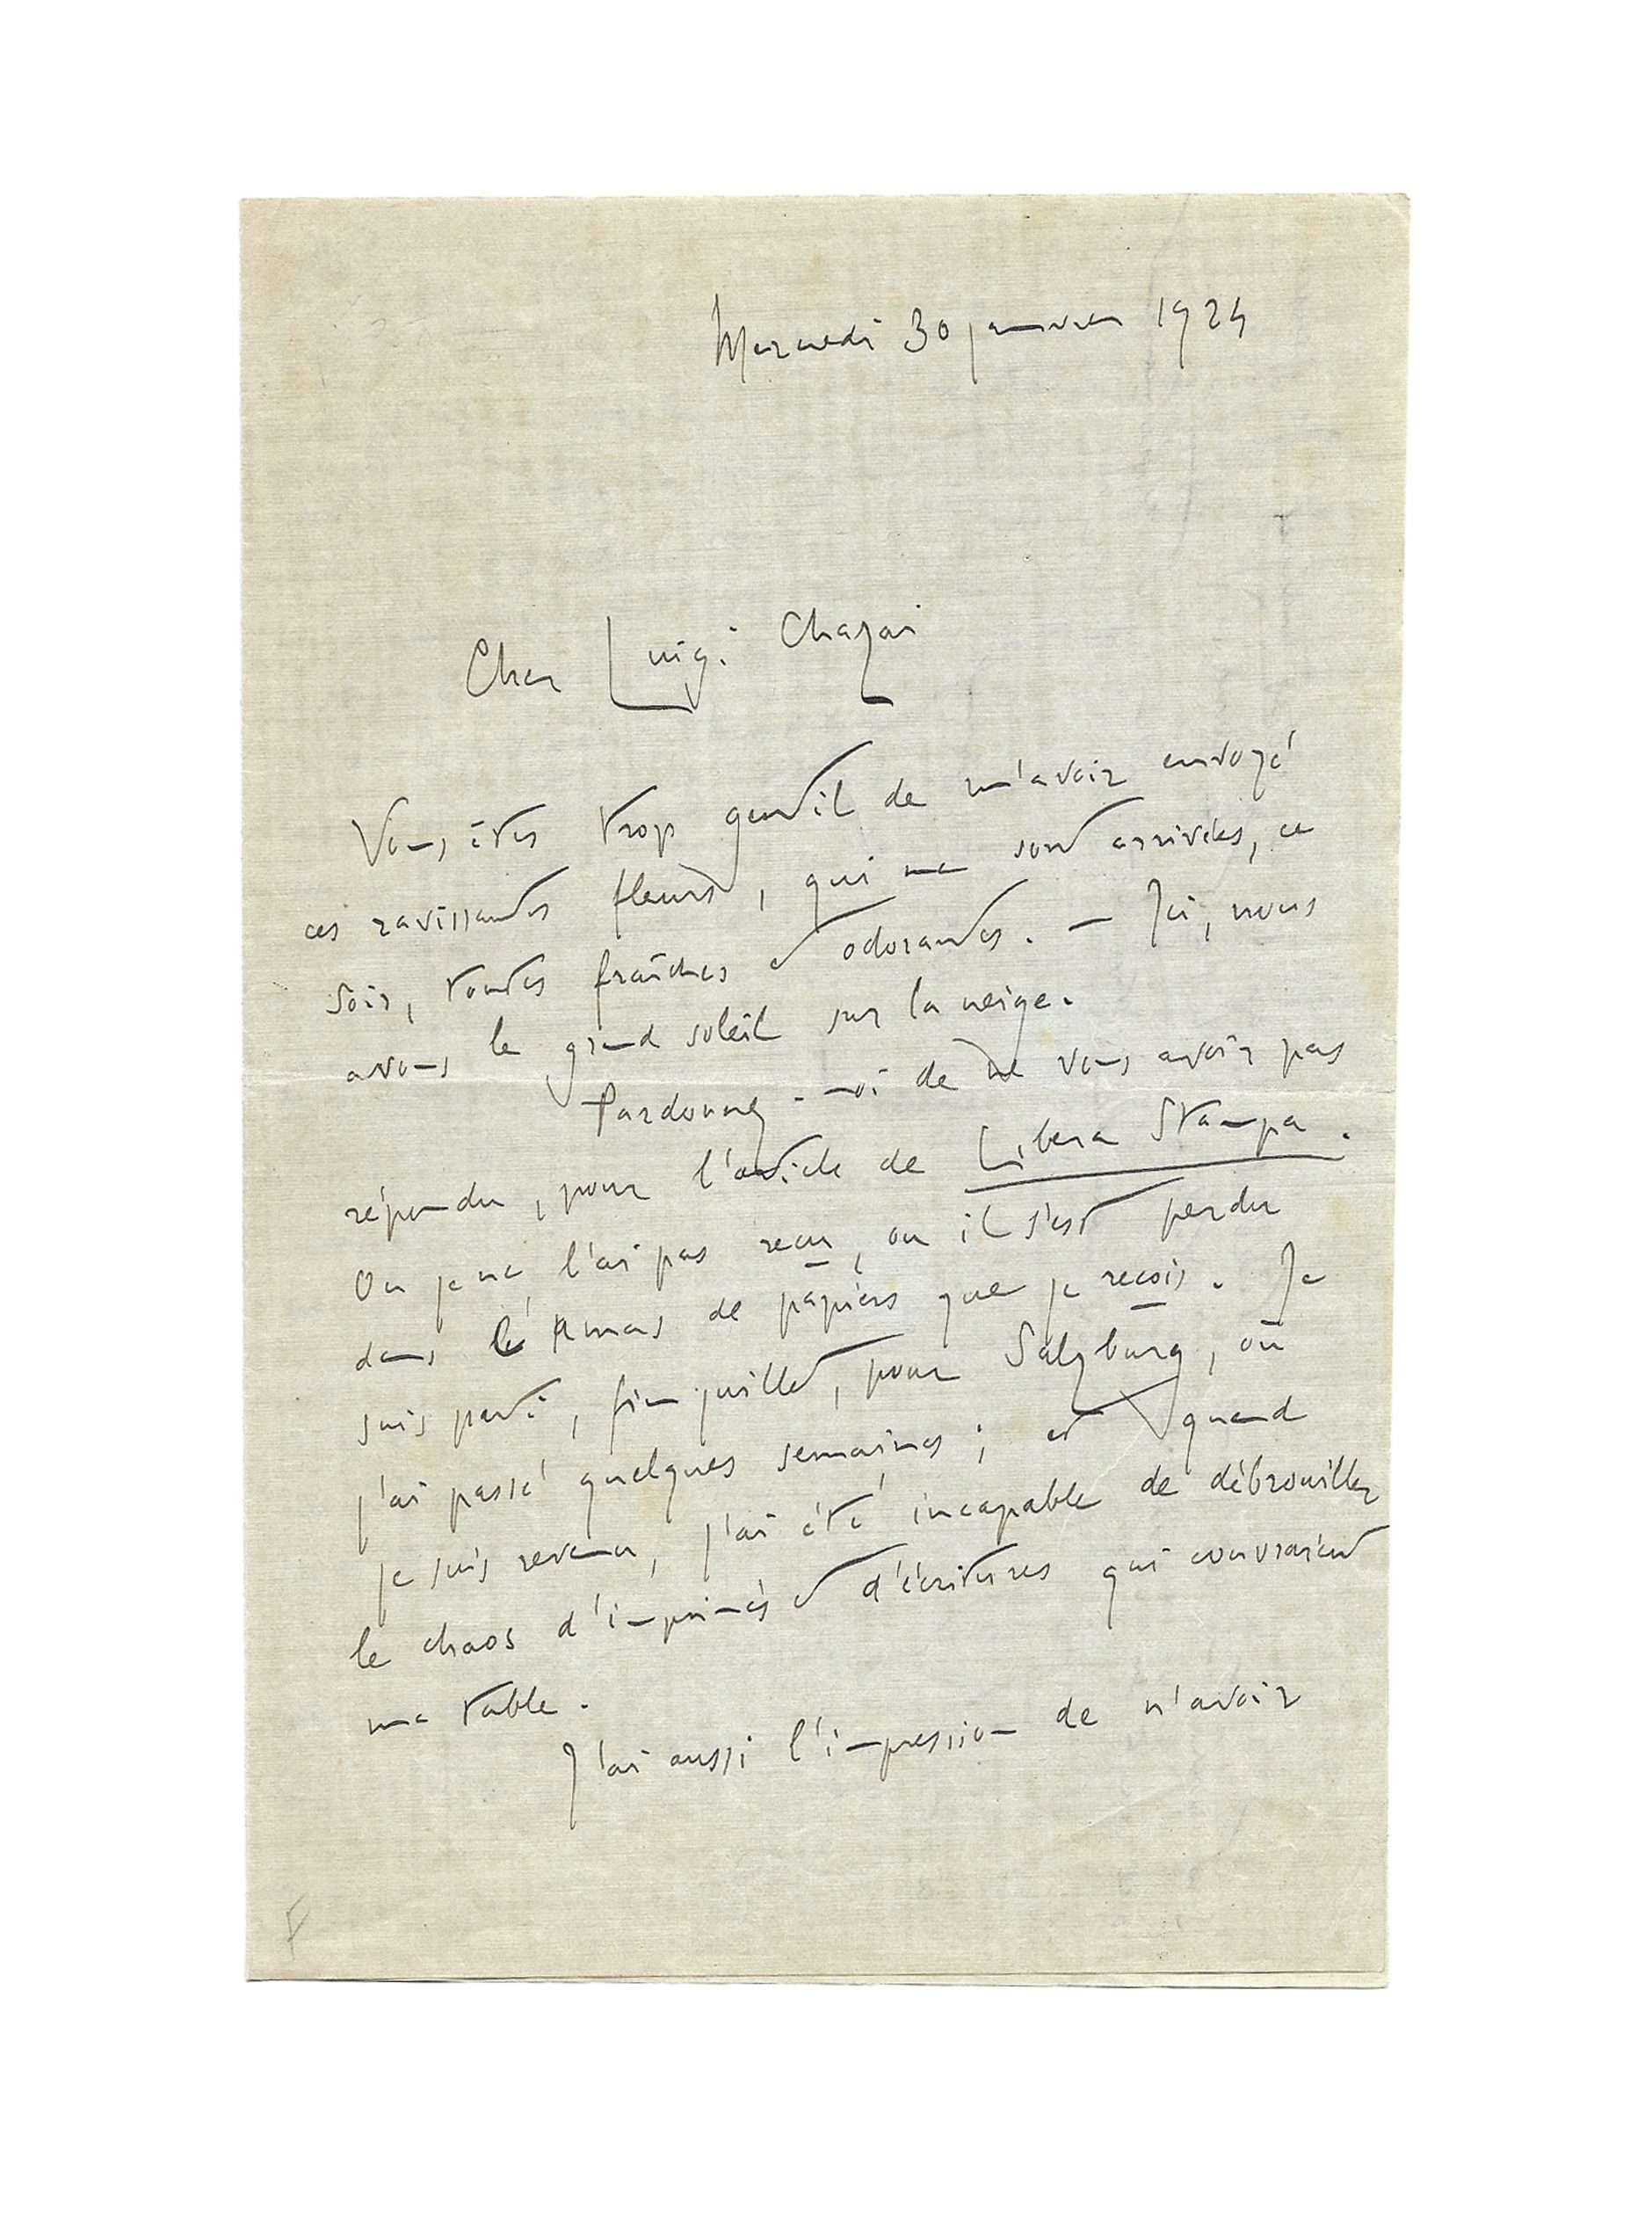 Mercredi 30 janvier 1924
Cher Luigi Chazai
Vous êtes trop gentil de m'avoir envoyé
ces ravissantes fleurs, qui me sont arrivées, ce
soir, toutes fraîches et odorantes. — Ici, nous
avons le grand soleil sur la neige.
Pardonnez-moi de ne vous avoir pas
répondu, pour l'article de Libera Stampa.
Ou je ne l'ai pas reçu, ou il s'est perdu
dans l'amas de papiers que je reçois. Je
suis parti, fin juillet, pour Salzburg, où
j'ai passé quelques semaines ; et quand
je suis revenu, j'ai été incapable de débrouiller
le chaos d'imprimés et d'écritures qui couvraient
ma table.
J'ai aussi l'impression de n'avoir
F